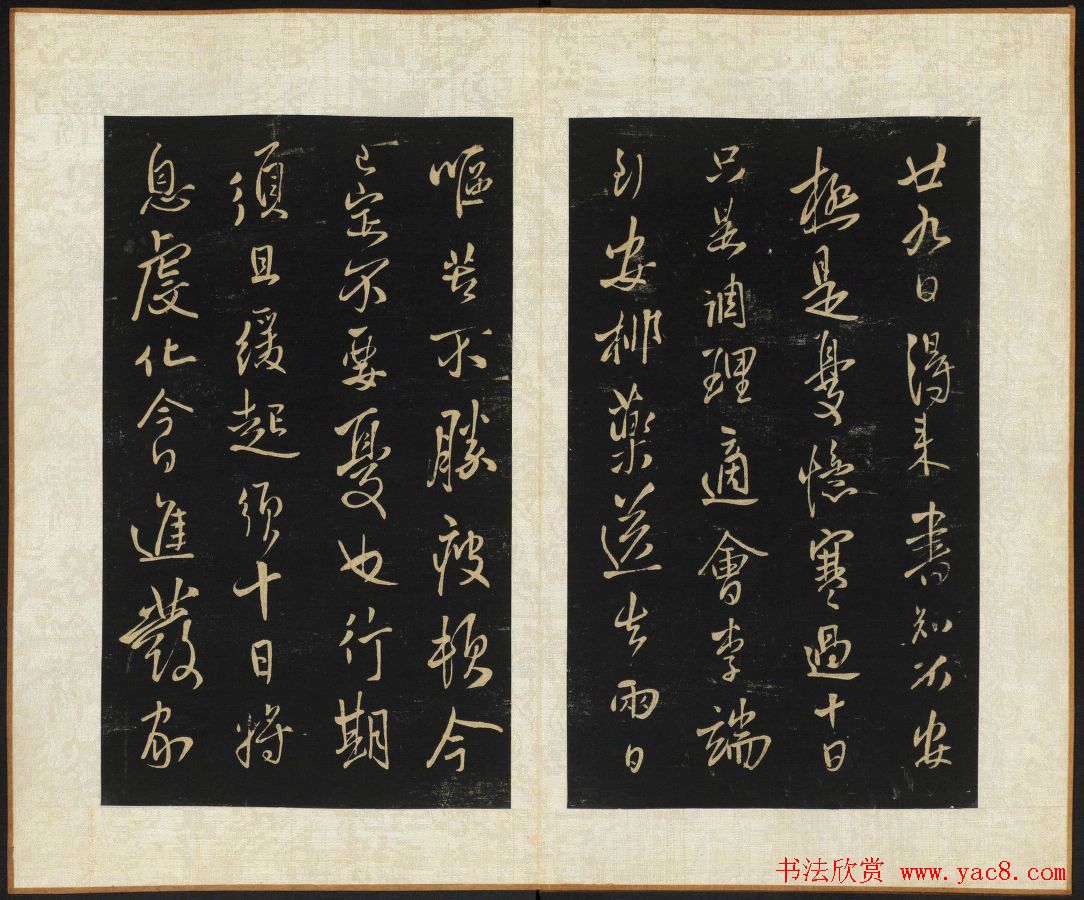 廿九日得来書知不安
極是憂憶寒過十日
只是調理適會李端
到安排藥送去兩日
嘔苦不勝疲頓今
已定不要憂也行期
須且緩起須十日將
息虔化今日進發家
书法欣赏 www.yac8.com